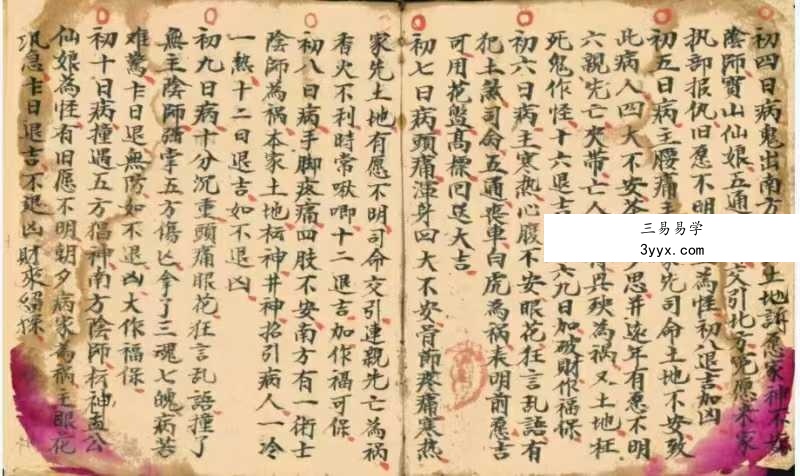 初四日病鬼出南方土地訴愿家神不安
陰師寶山仙娘五通交引北方兇愿来家
执部报仇旧愿不明為怪初八退吉加凶
初五日病主腰痛主家先司命土地不安致
此病人四大不安茶思并远年有愿不明
六親先亡夾帶亡人有異殃為祸又土地枉
死鬼作怪十六退吉六九日加破財作福保
初六日病主寒热心腹不安眼花狂言乱語有
犯土煞司命五通喪車白虎為祸表明前愿吉
可用花盤高標回送大吉
初七日病頭痛渾身四大不安骨節疼痛寒热
家先土地有愿不明司命交引連親先亡為祸
香火不利時常啾唧十二退吉加作福可保
初八日病手脚疼痛四肢不安南方有一術士
陰師為祸本家土地坛神井神招引病人一冷
一熱十二日退吉如不退凶
初九日病十分沉重頭痛眼花狂言乱語撞了
無主陰師强掌五方傷亡拿了三魂七魄病苦
难驚卡日退無防如不退凶大作福保
初十日病撞遇五方猖神南方陰師坛神盂公
仙娘為怪有旧愿不明朝夕病家為祸主眼花
卡日退吉不退凶財來
三易易学
3yyx.com